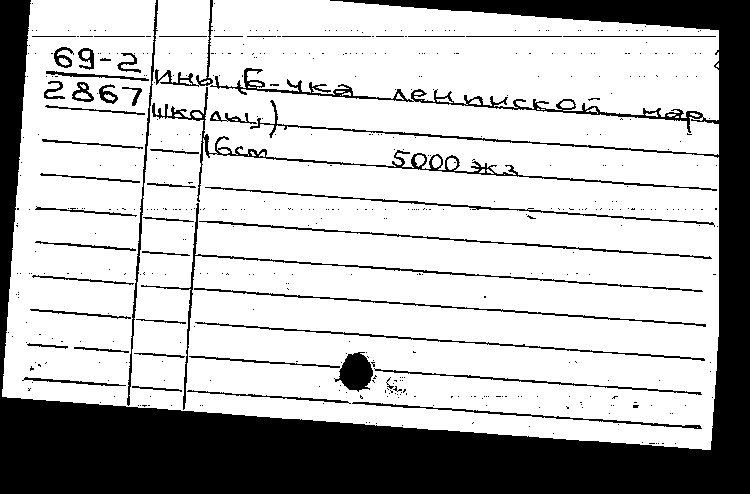 69-2
2867
ины (Б-чка ленинской нар
школы).
16см 5000 экз